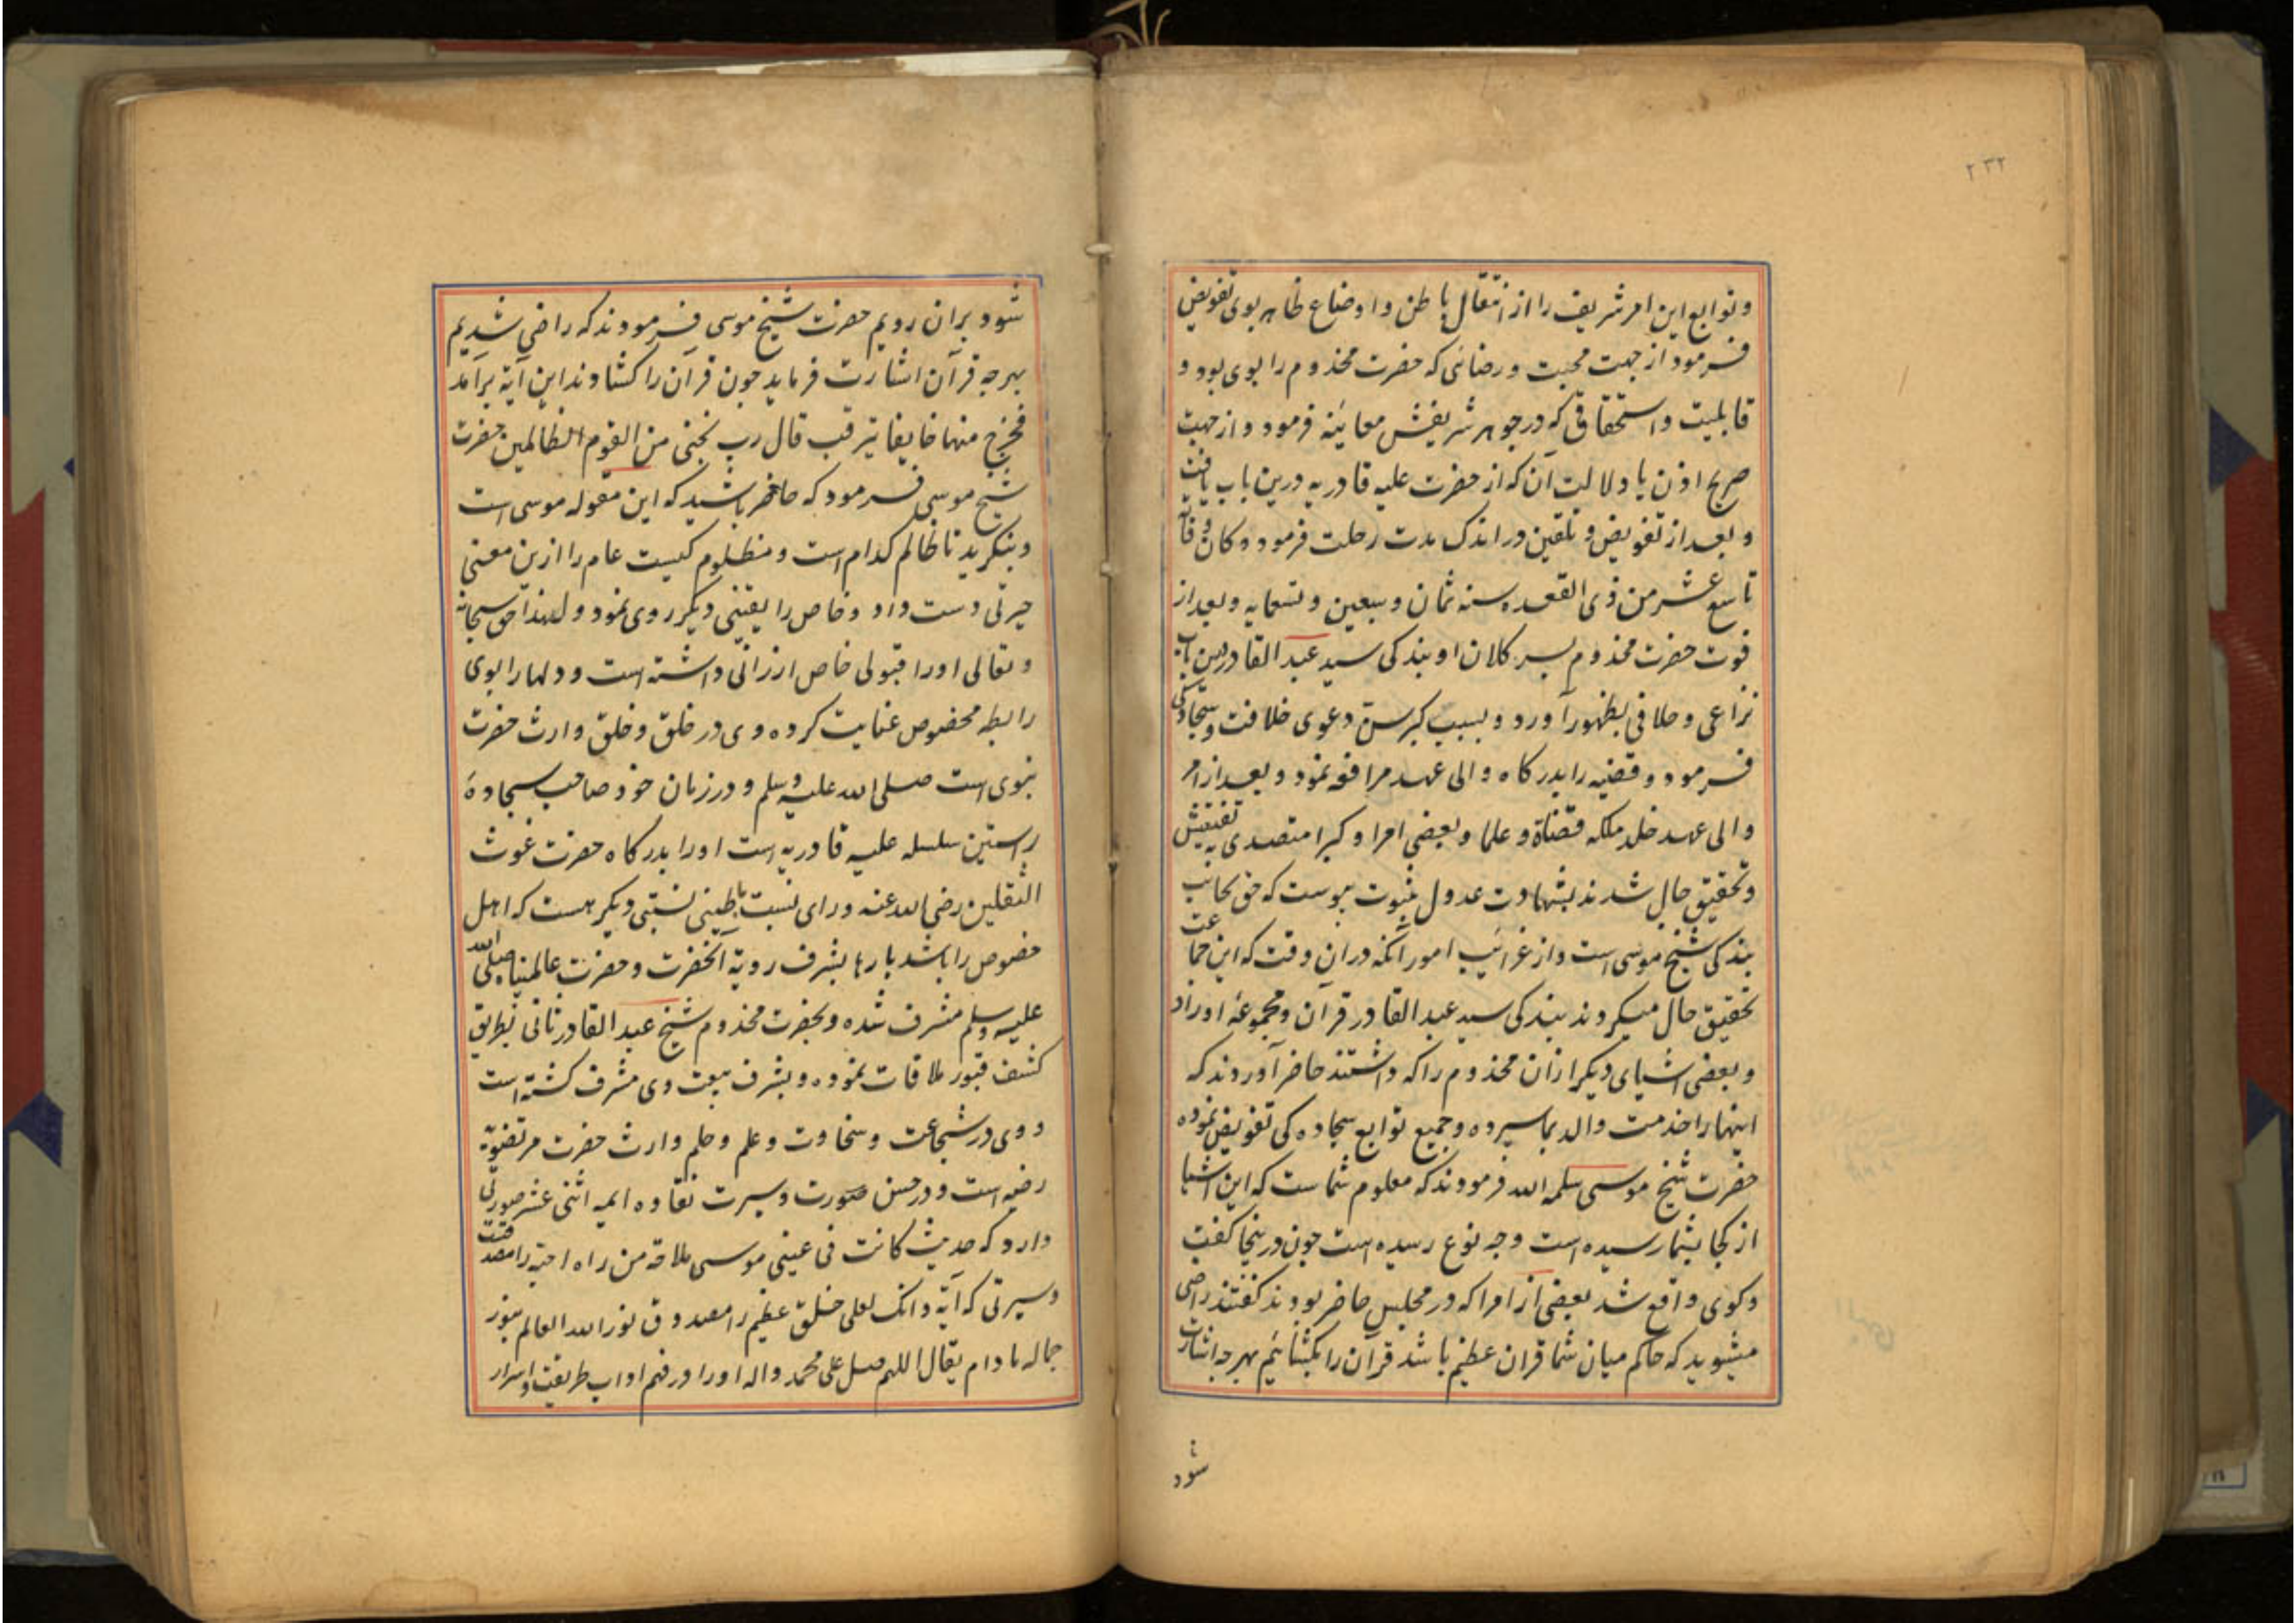 ۲۳۲
وتوابع این امر شریف را از انتقال باطن و اوضاع ظاهر بوی تفویض
فرمود از جهت محبت و رضائی که حضرت مخدوم را بوی بود و
قابلیت و استحقاقی که در جوهر شریفش معاینه فرمود و از جهت
صریح اذن یا دلالت آن که از حضرت علیه قادریه درین باب یافت
و بعد از تفویض و تلقین در اندک مدت رحلت فرمود و کان وفاته
تاسع عشر من ذی القعده سنه ثمان و سبعین و تسعمایه و بعد از
فوت حضرت مخدوم پسر کلان او بندکی سید عبد القادر درین باب
نزاعی و خلافی بظهور آورد و بسبب کبر سن دعوی خلافت و سجادکی
فرمود و قضیه را بدرکاه والی عهد مرافعه نمود و بعد از امر
والی عهد خلد ملکه قضاة و علما و بعضی امرا و کبرا متصدی به تفتیش
و تحقیق حال شدند بشهادت عدول بثبوت پیوست که حق بجانب
بندکی شیخ موسی است و از غرائب امور آنکه دران وقت که این جماعت
تحقیق حال میکردند بندکی سید عبد القادر قرآن و مجموعهٔ اوراد
و بعضی اشیای دیکر ازان مخدوم را که داشتند حاضر آوردند که
اینها را خدمت والد بما سپرده و جمیع توابع سجاده کی تفویض نموده
حضرت شیخ موسی سلمه الله فرمودند که معلوم شماست که این اشیا
از کجا بشما رسیده است و چه نوع رسیده است چون درینجا کفت
و کوی واقع شد بعضی از امرا که در مجلس حاضر بودند کفتند راضی
میشوید که حاکم میان شما قرآن عظیم باشد قرآن را بکشائیم بهرچه اشارت
شود
شود بران رویم حضرت شیخ موسی فرمودند که راضی شدیم
بهرچه قرآن اشارت فرماید چون قرآن را کشادند این آیة برآمد
فخرج منها خایفا یترقب قال رب نجنی من القوم الظالمین حضرت
شیخ موسی فرمود که حاضر باشید که این مقوله موسی است
و بنکرید تا ظالم کدام است و مظلوم کیست عام را ازین معنی
حیرتی دست داد و خاص را یقینی دیکر روی نمود و لهذا حق سبحانه
و تعالی او را قبولی خاص ارزانی داشته است و دلها را بوی
رابطه مخصوص عنایت کرده وی در خلق و خلق وارث حضرت
نبوی است صلی الله علیه وسلم و در زمان خود صاحب سجادهٔ
راستین سلسله علیه قادریه است او را بدرکاه حضرت غوث
الثقلین رضی الله عنه ورای نسبت باطینی نسبتی دیکر هست که اهل
خصوص را باشد بارها بشرف رویة آنحضرت و حضرت عالمپناه صلی الله
علیه وسلم مشرف شده و بحضرت مخدوم شیخ عبد القادر ثانی بطریق
کشف قبور ملاقات نموده و بشرف بیعت وی مشرف کشته است
و وی در شجاعت و سخاوت و علم و حلم وارث حضرت مرتضویة
رضیه است و در حسن صورت و سیرت نقاوه ایمه اثنی عشر صورتی
دارد که حدیث کانت فی عینی موسی ملاقه من راه احبه را مصدوقست
و سیرتی که آیة و انک لعلی خلق عظیم را مصدوق نور الله العالم بنور
جماله مادام یقال اللهم صل علی محمد واله او را در فهم اداب طریقت و اسرار